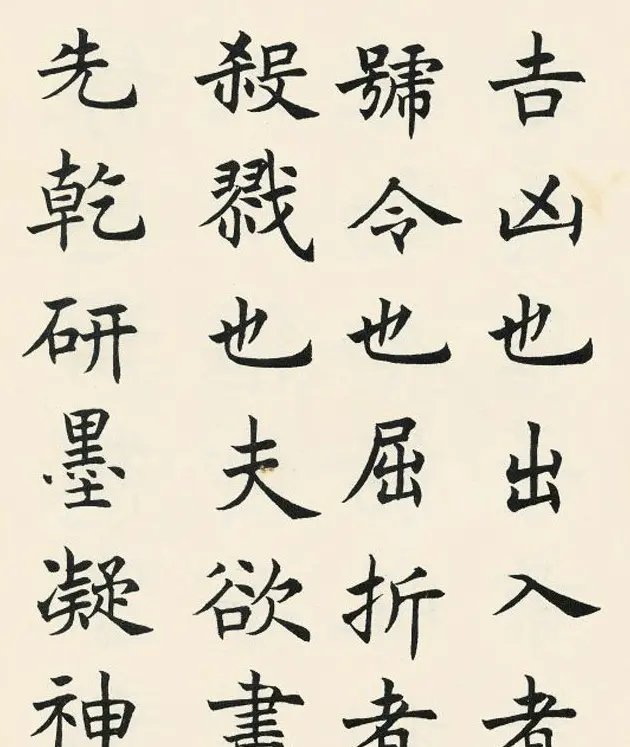 吉凶也出入者
號令也屈折者
殺戮也夫欲書
先乾研墨凝神